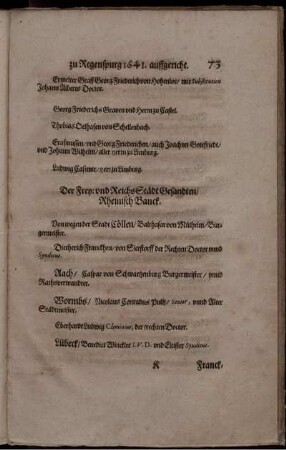 zu Regenspurg 1641. auffgericht. 73
Ermelter Graff Georg Friederich von Hohenloe / mit Substitution
Johann Albern Doctor.
Georg Friederichs Graven und Herrn zu Castel.
Thobias Oelhafen von Schellenbach.
Erasmussen / und Georg Friederichen / auch Joachim Gottfriedt /
und Johann Wilhelm / aller Herrn zu Limburg.
Ludwig Casimir / Herr zu Limburg.
Der Frey: und Reichs Städt Gesandten /
Rheinisch Banck.
Von wegen der Stadt Cöllen / Balthasar von Mülheim / Bur-
germeister.
Dietherich Franckhen / von Sierstorff der Rechten Doctor unnd
Syndicus.
Aach / Caspar von Schwartzenberg Burgermeister / unnd
Rathsverwandter.
Wormbs / Nicolaus Conradus Pistz / Senior, unnd Alter
Städtmeister.
Eberhardt Ludwig der Rechten Doctor.
Lübeck / Benedict Winckler I. V. D. und Eltister Syndicus.
K Franck-